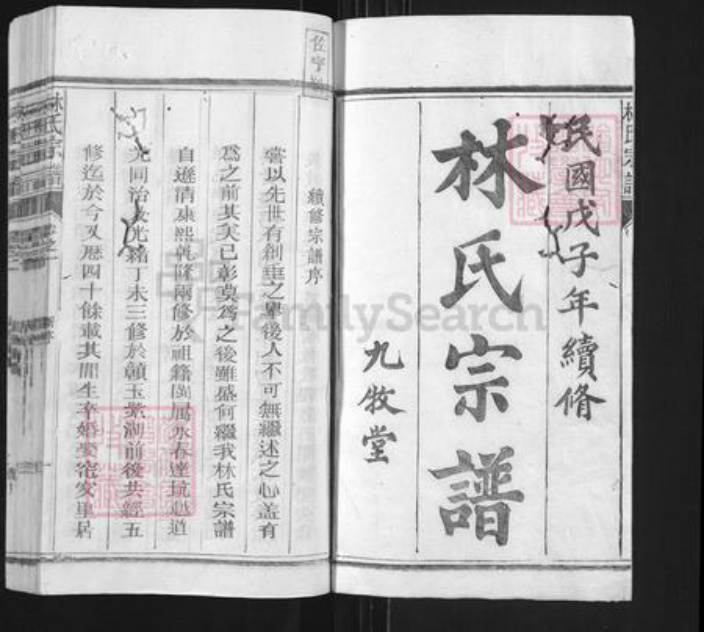 民國戊子年續脩
林氏宗譜
九牧堂
林氏宗譜
續修宗譜序
嘗以先世有創垂之舉後人不可無繼述之心蓋有
為之前其美已彰莫為之後雖盛何繼我林氏宗譜
自遜清康熙乾隆兩修於祖籍閩屬永春達坑越道
光同治及光緒丁未三修於贛玉紫湖前後共經五
修迄於今又歷四十餘載其間生卒婚娶窀穸里居
林氏宗譜
FamilySearch